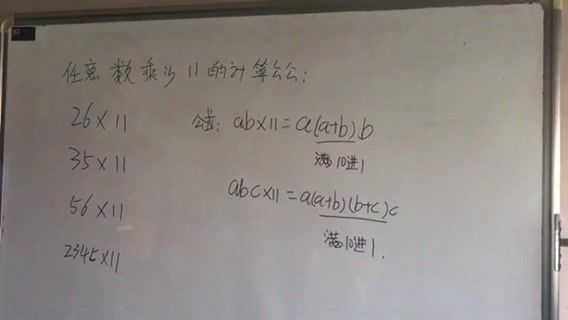 任意数乘以11的计算公式:
26×11
35×11
56×11
2345×11
公式: ab×11=a(a+b)b
满10进1
abc×11=a(a+b)(b+c)c
满10进1.